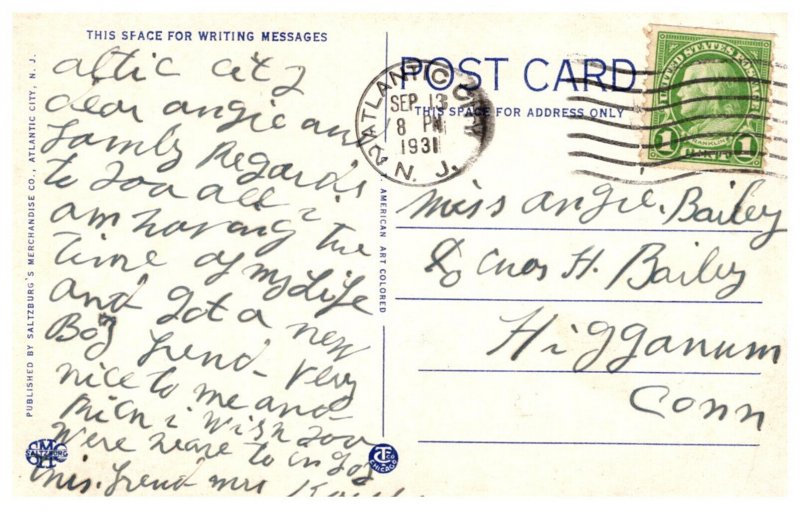 THIS SPACE FOR WRITING MESSAGES
altic city
dear angie an
famly Regards
to you all i
am having the
time of my Life
and got a new
Boy frend - very
nice to me and
rich i wish you
were here to in Joy
this. frend mrs
POST CARD
THIS SPACE FOR ADDRESS ONLY
ATLANTIC CITY
SEP 13
8 PM
1931
N. J.
UNITED STATES POSTAGE
FRANKLIN
1 1
Miss angie. Bailey
℅ Enos H. Bailey
Higganum
Conn
PUBLISHED BY SALTZBURG'S MERCHANDISE CO., ATLANTIC CITY, N. J.
AMERICAN ART COLORED
SALTZBURG
CHICAGO